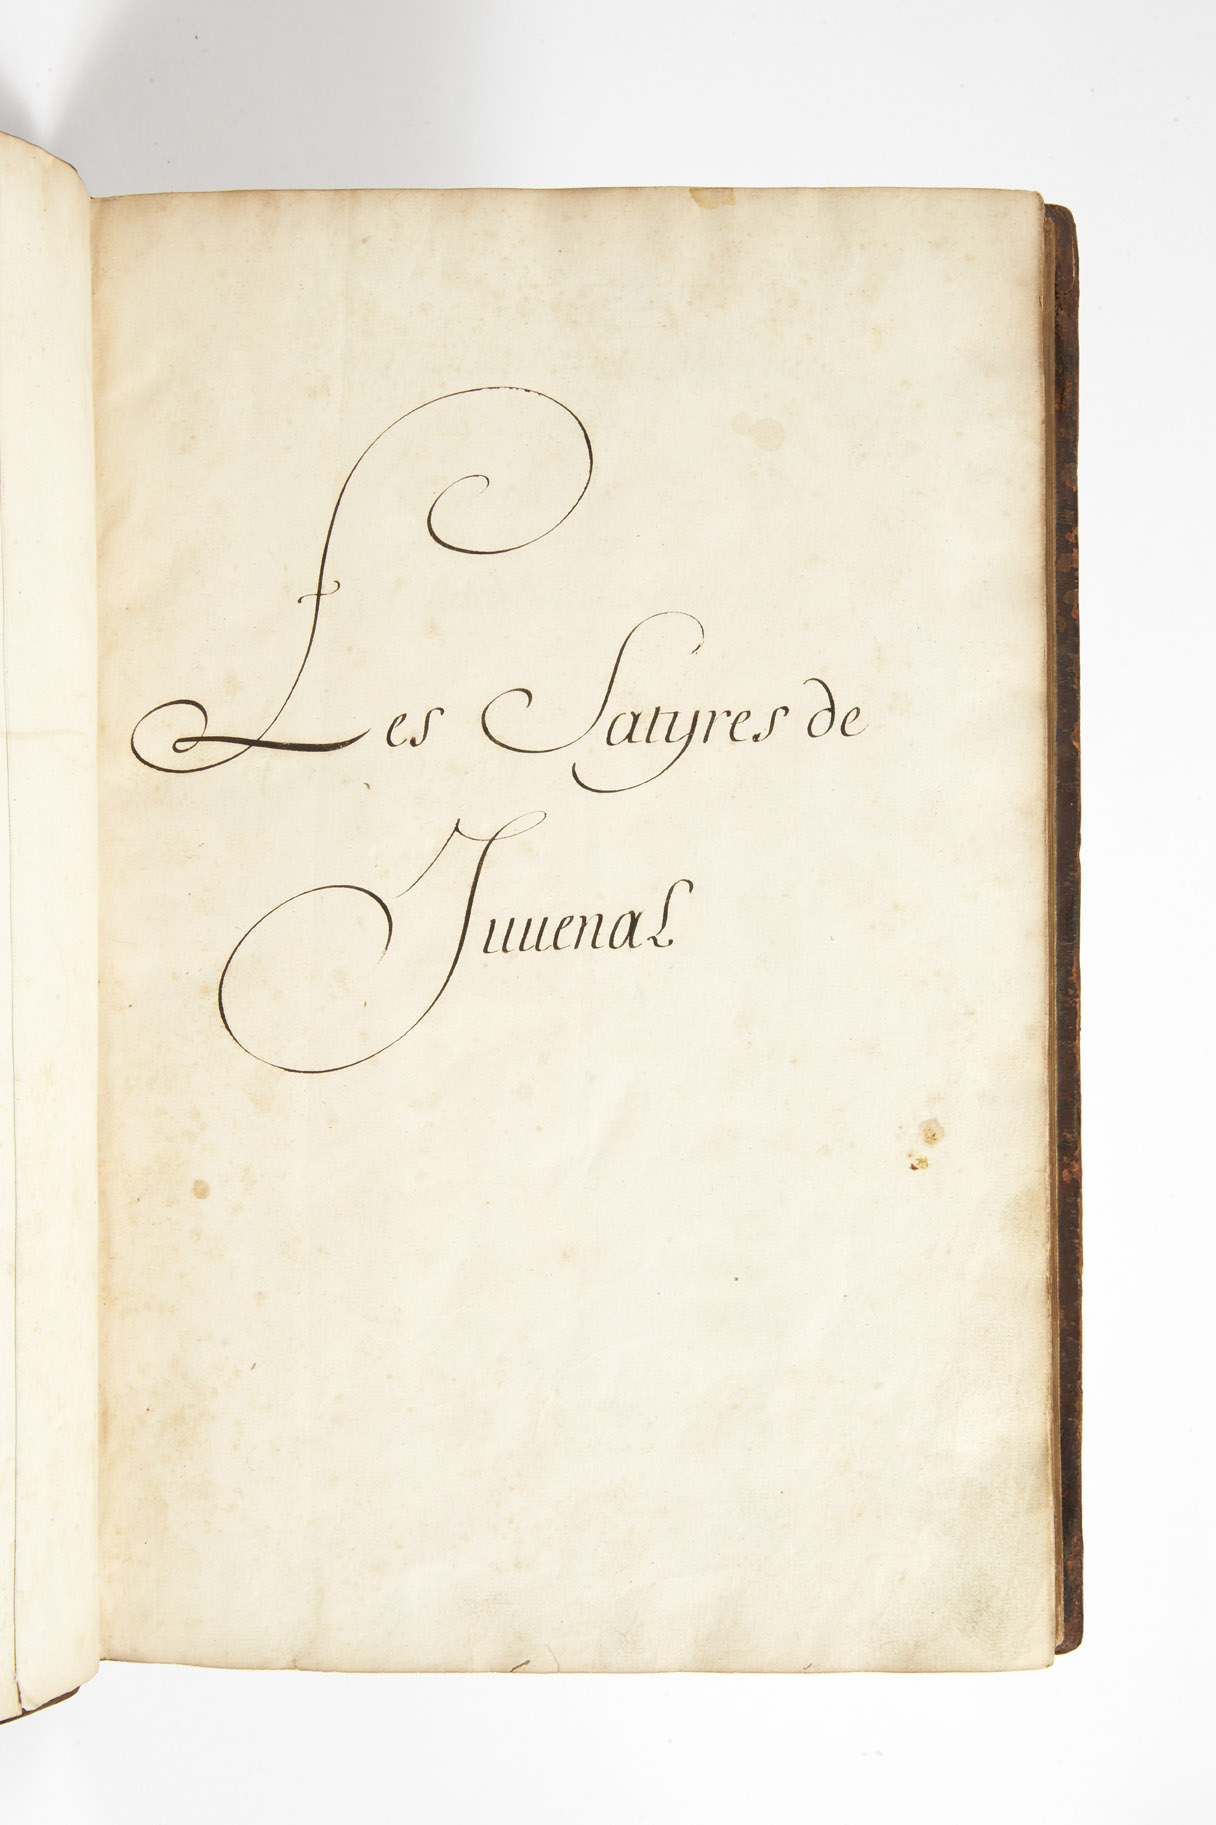 Les Satyres de
Juuenal